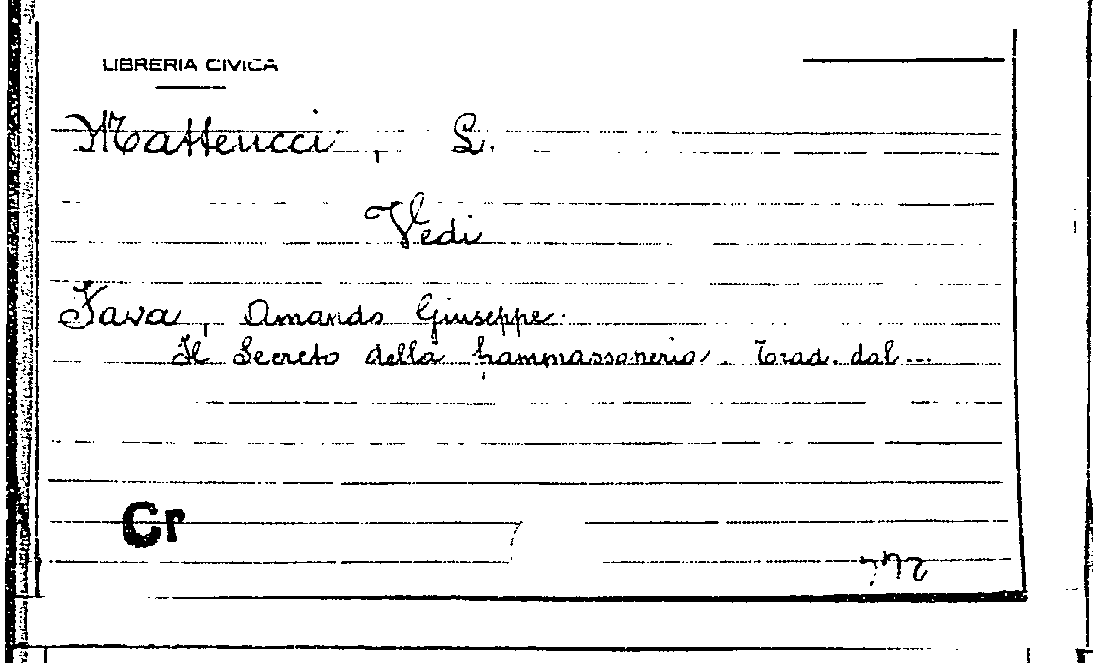 LIBRERIA CIVICA
Matteucci, L.
Vedi
Fava, Amando Giuseppe.
Il Secreto della frammassoneria. Trad. dal...
Cr